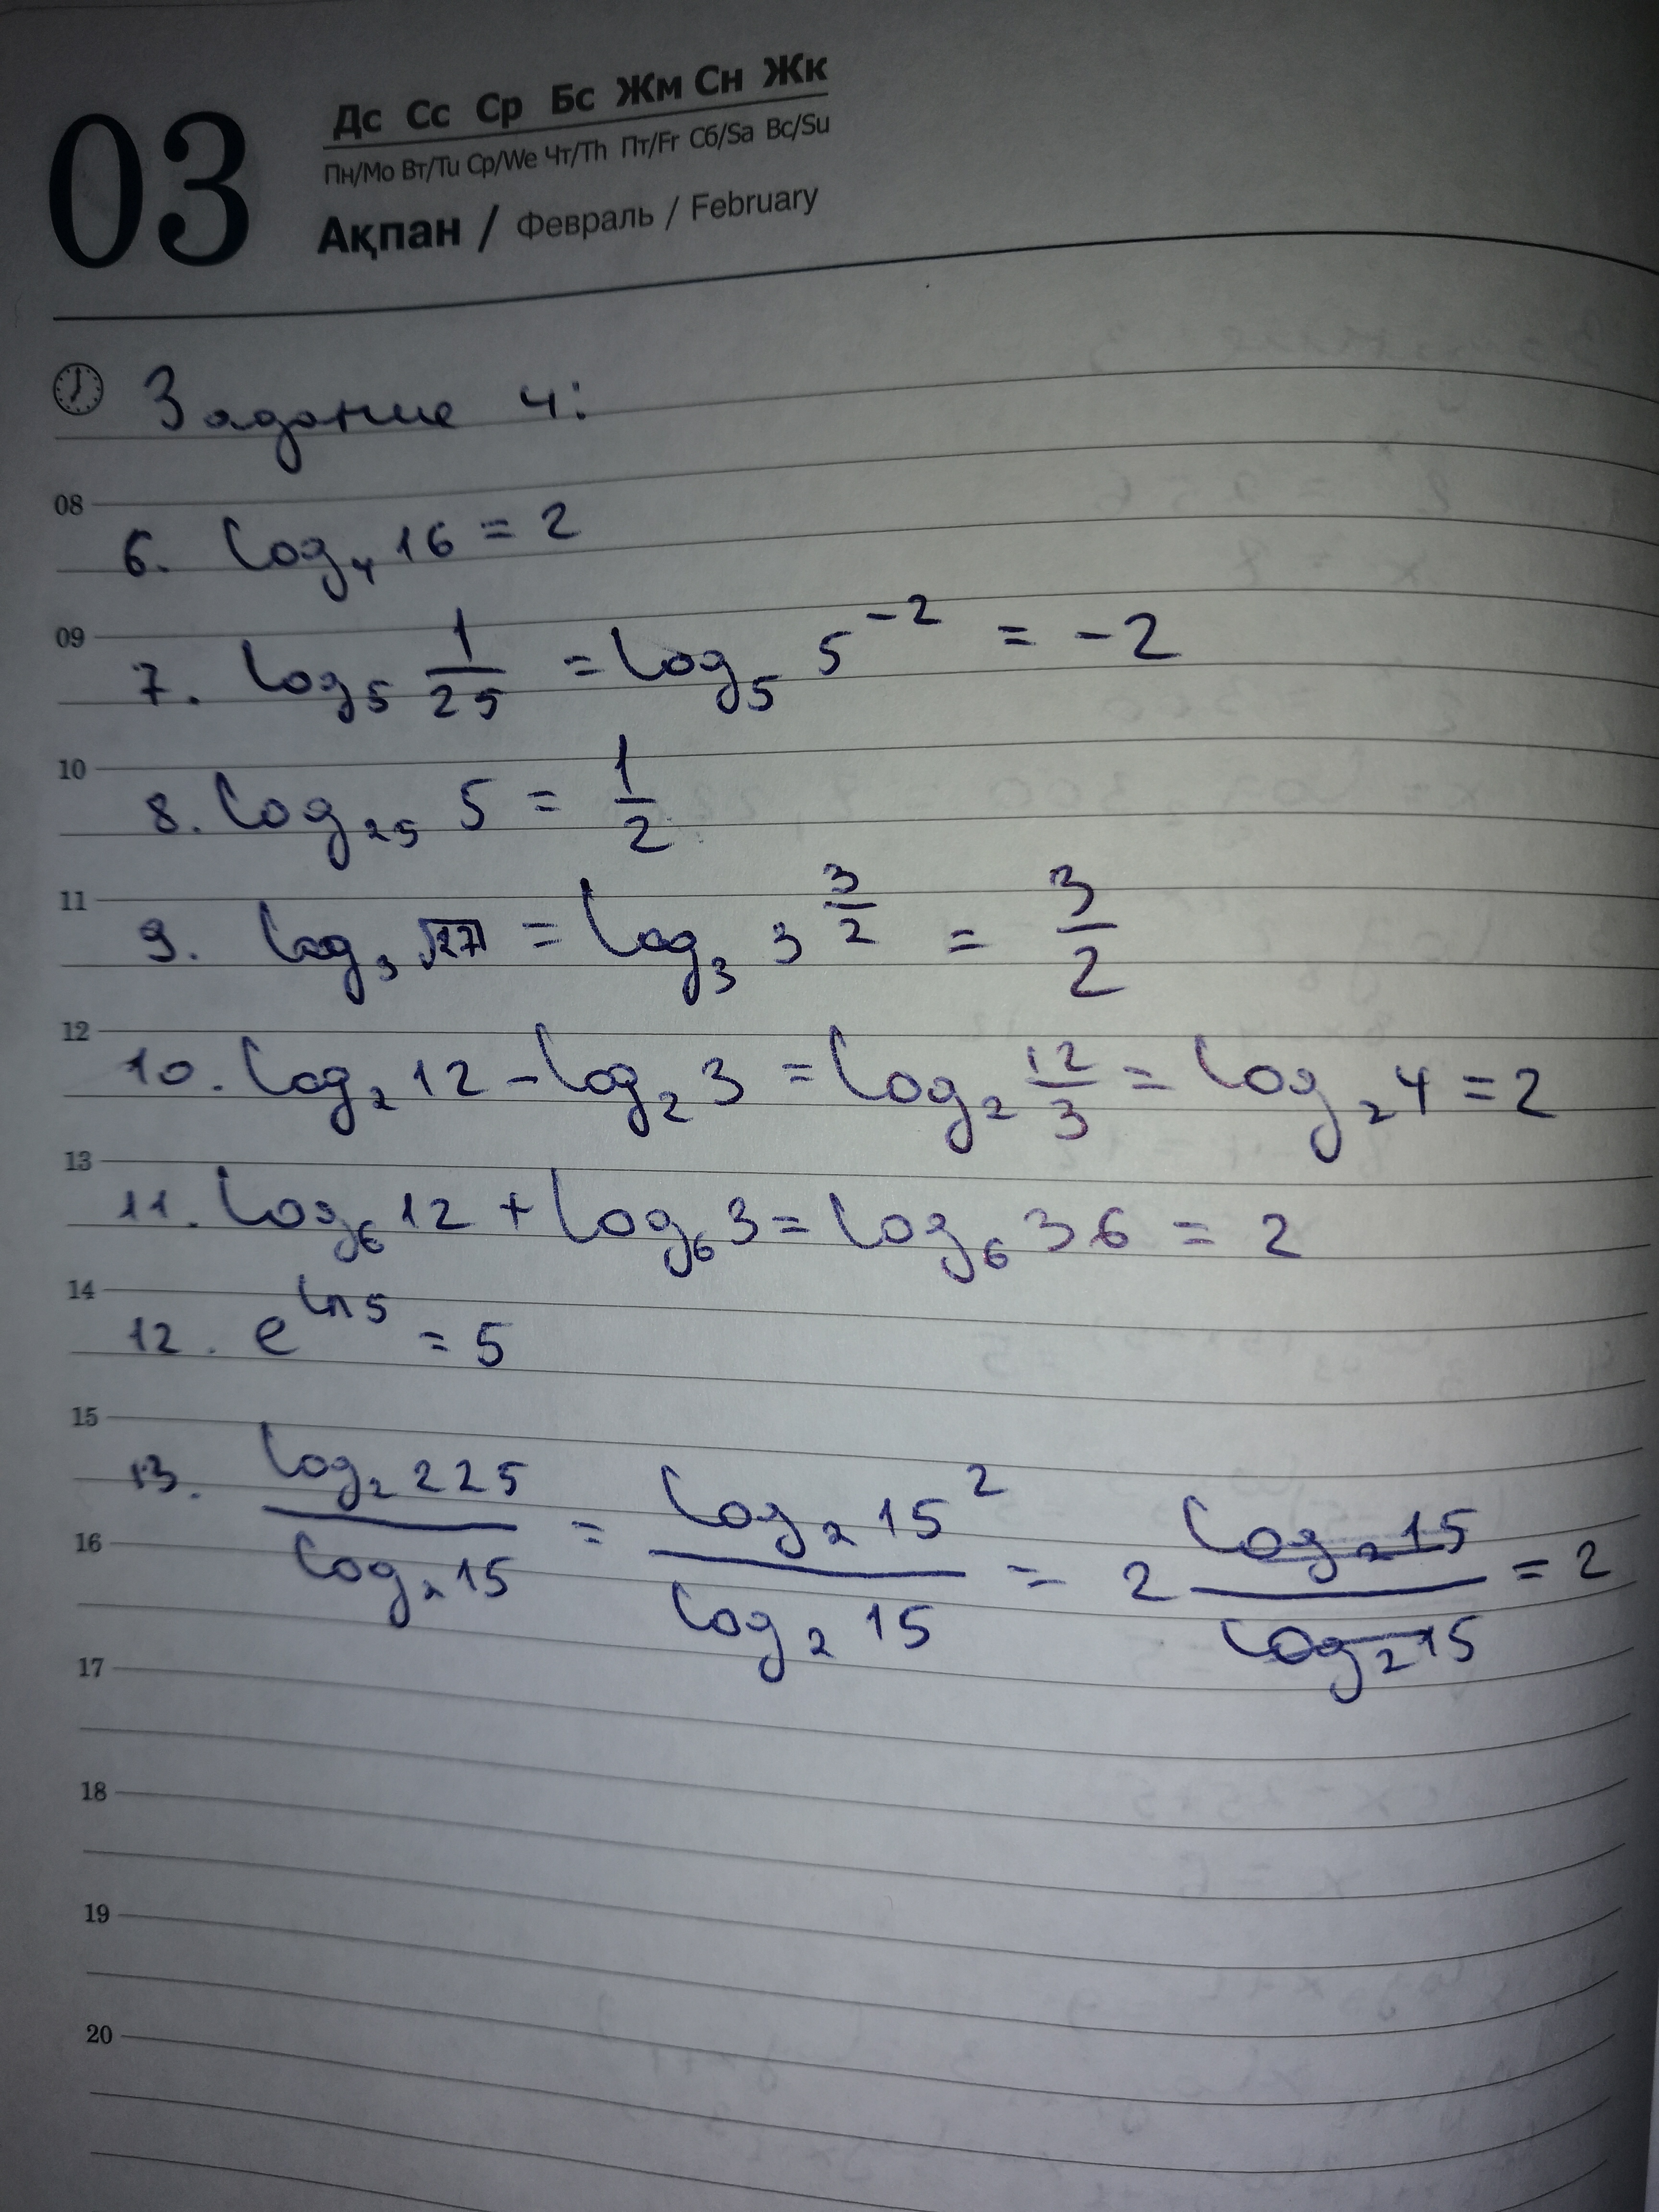 03
Дс Сс Ср Бс Жм Сн Жк
Пн/Mo Вт/Tu Ср/We Чт/Th Пт/Fr Сб/Sa Вс/Su
Ақпан / Февраль / February
Задание 4:
08
6. log₄ 16 = 2
09
7. log₅ 1/25 = log₅ 5⁻² = -2
10
8. log₂₅ 5 = 1/2
11
9. log₃ √27 = log₃ 3^(3/2) = 3/2
12
10. log₂ 12 - log₂ 3 = log₂ 12/3 = log₂ 4 = 2
13
11. log₆ 12 + log₆ 3 = log₆ 36 = 2
14
12. e^(ln 5) = 5
15
13. log₂ 225 / log₂ 15 = log₂ 15² / log₂ 15 = 2 log₂ 15 / log₂ 15 = 2
16
17
18
19
20